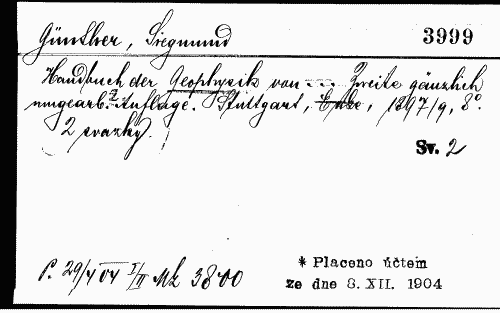 Günther, Siegmund 3999
Handbuch der Geophysik von ... Zweite gänzlich
umgearb. Auflage. Stuttgart, Enke, 1897/9, 8°.
2 svazky.
Sv. 2
P. 29/4 04 I/II Mk 38·00
* Placeno účtem
ze dne 8. XII. 1904